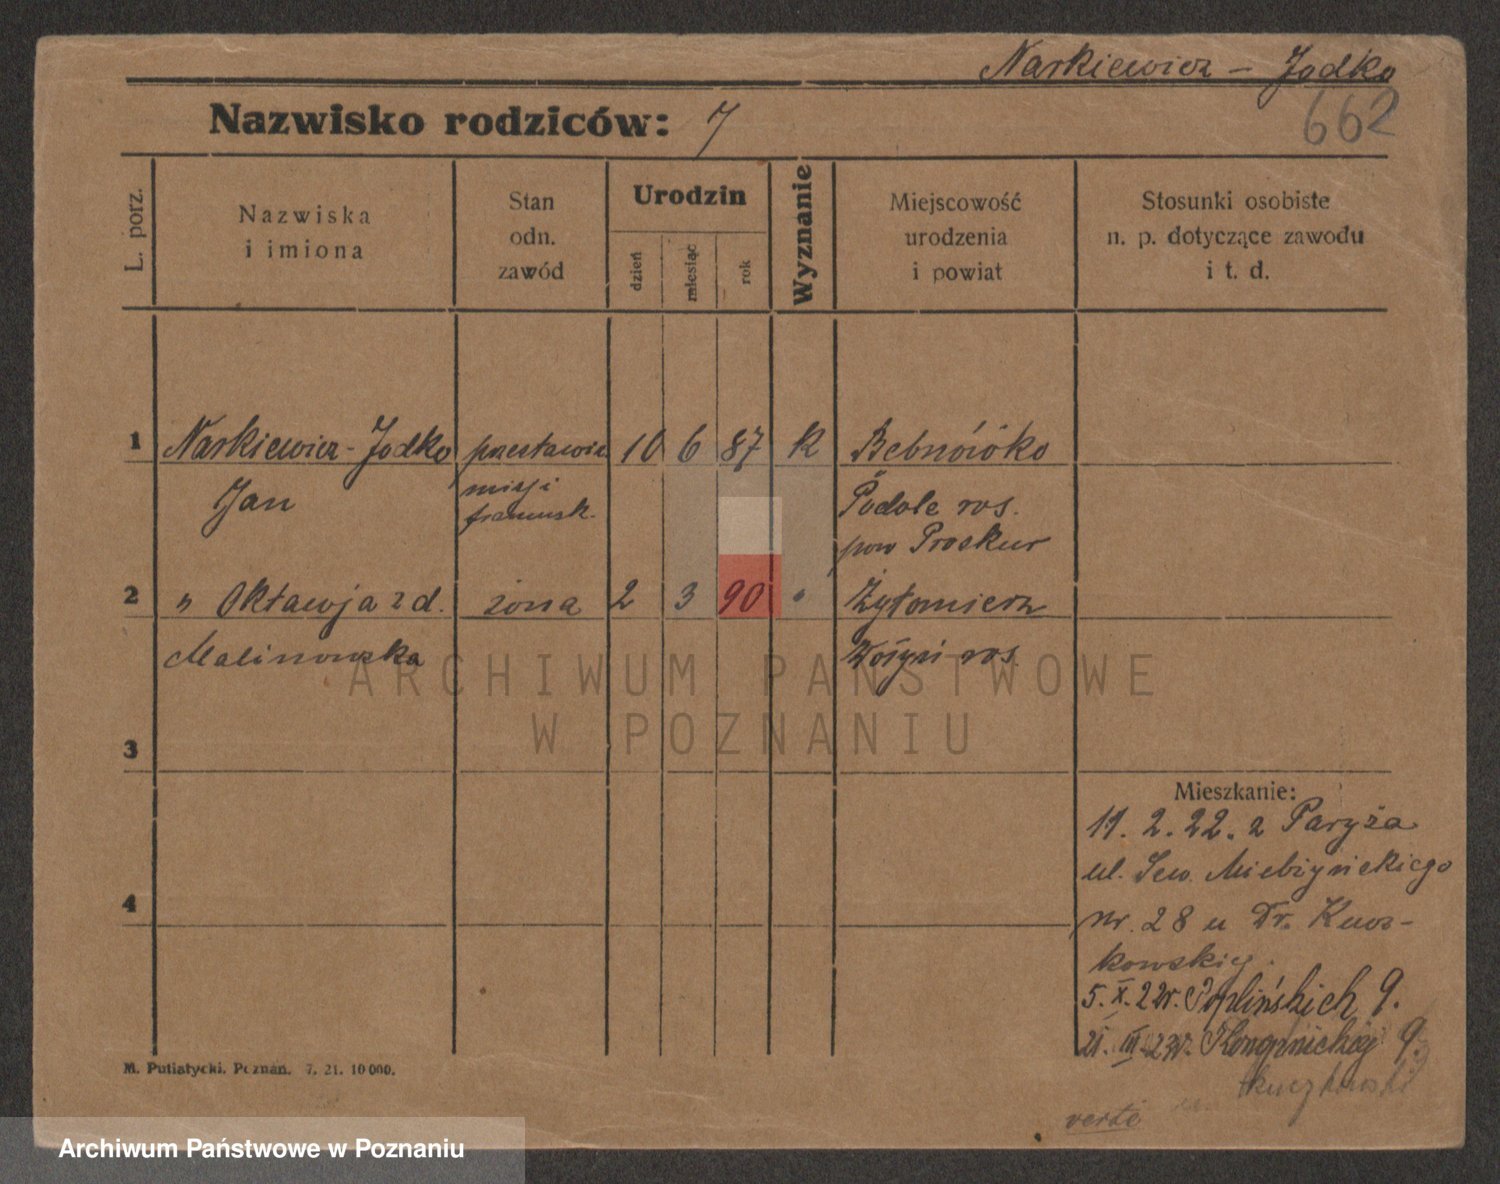 Narkiewicz - Jodko
662
Nazwisko rodziców: 7
L. porz.
Nazwiska
i imiona
Stan
odn.
zawód
Urodzin
dzień
miesiąc
rok
Wyznanie
Miejscowość
urodzenia
i powiat
Stosunki osobiste
n. p. dotyczące zawodu
i t. d.
1 Narkiewicz - Jodko 10 6 87 k
Jan misji Podole ros.
francusk. pow Proskur
2 " Oktawja z d. żona 2 3 90 " Żytomierz
Malinowska Wołyń ros.
ARCHIWUM PAŃSTWOWE
W POZNANIU
3
Mieszkanie:
11. 2. 22. z Paryża
ul. Sew. Mielżyńskiego
4
nr. 28 u Dr. Kwos-
kowskiej.
5. X. 22r. Poplińskich 9.
21. III. 23r. Konopnickiej 9.
verte
M. Putiatycki, Poznań. 7. 21. 10000.
Archiwum Państwowe w Poznaniu